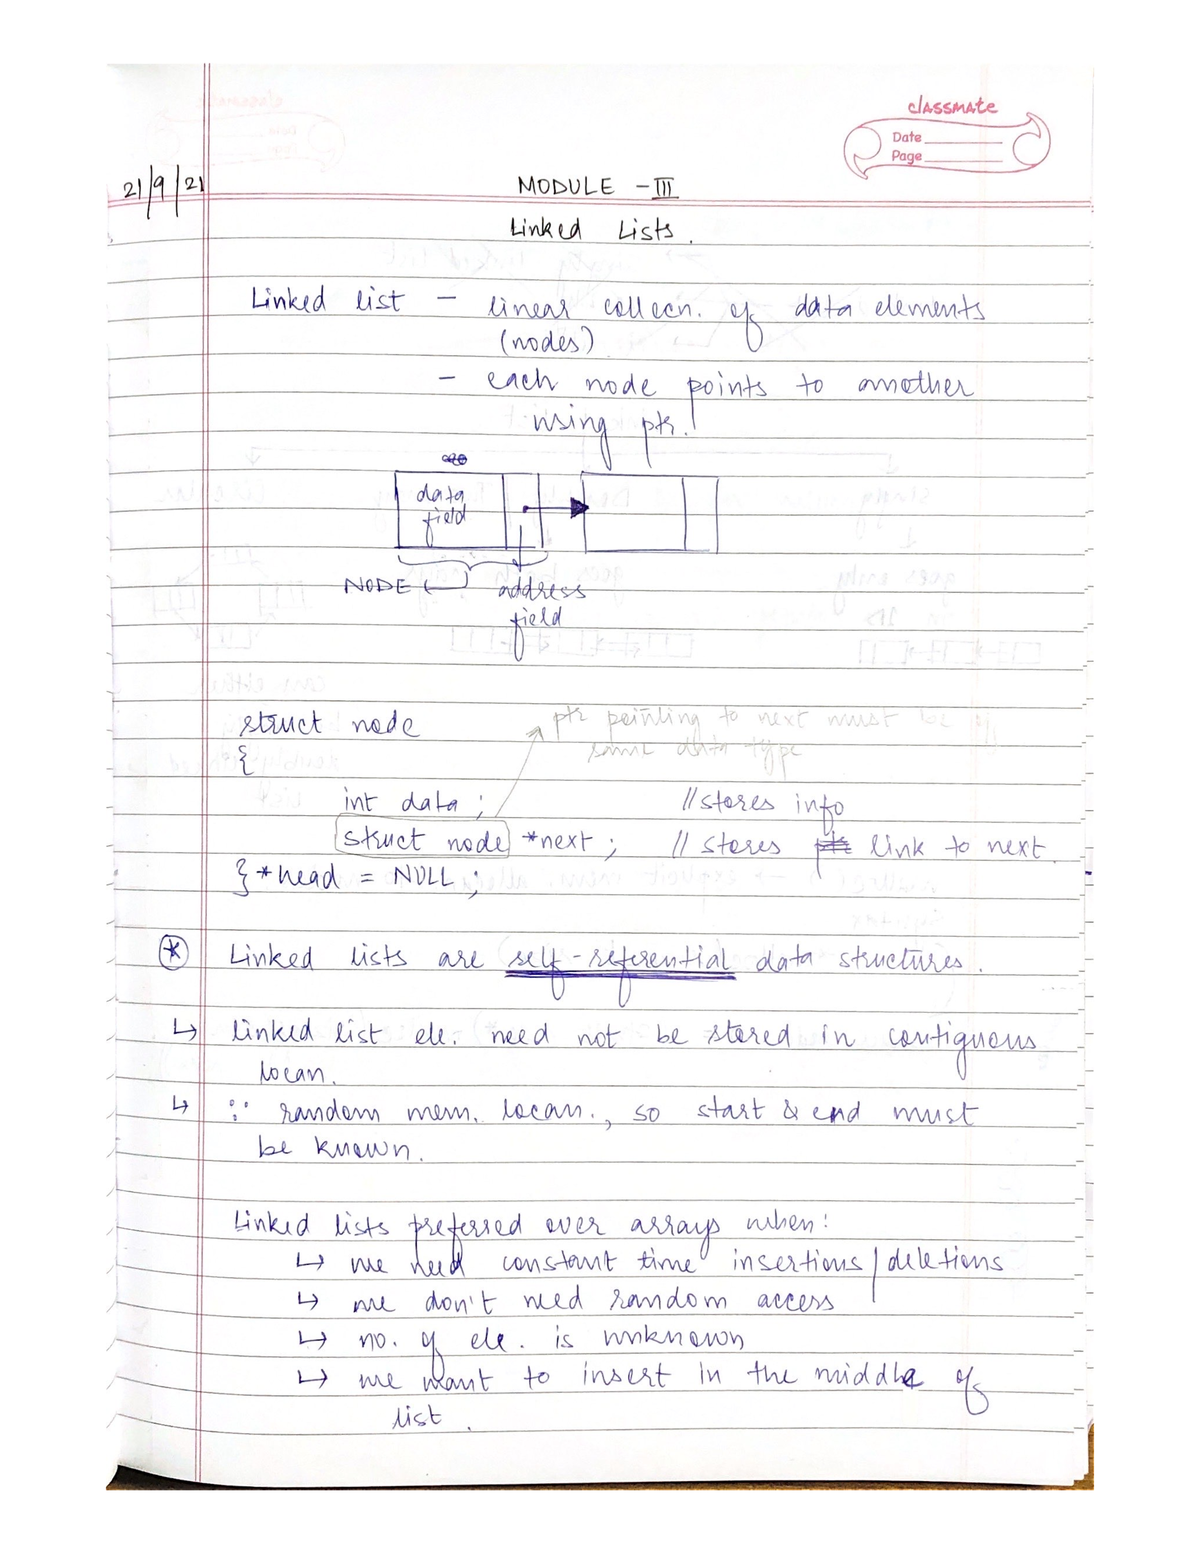 classmate
Date
Page
21/9/21
MODULE - III
Linked Lists.
Linked list - linear collecn. of data elements
(nodes)
- each node points to another
using ptr.
data
field
NODE
address
field
struct node
ptr pointing to next must be of
same data type
{
int data; // stores info
struct node *next; // stores link to next.
} *head = NULL;
* Linked lists are self-referential data structures.
↳ linked list ele. need not be stored in contiguous
locan.
↳ ∵ random mem. locan., so start & end must
be known.
Linked lists preferred over arrays when:
↳ we need constant time insertions/deletions
↳ we don't need random access
↳ no. of ele. is unknown
↳ we want to insert in the middle of
list.